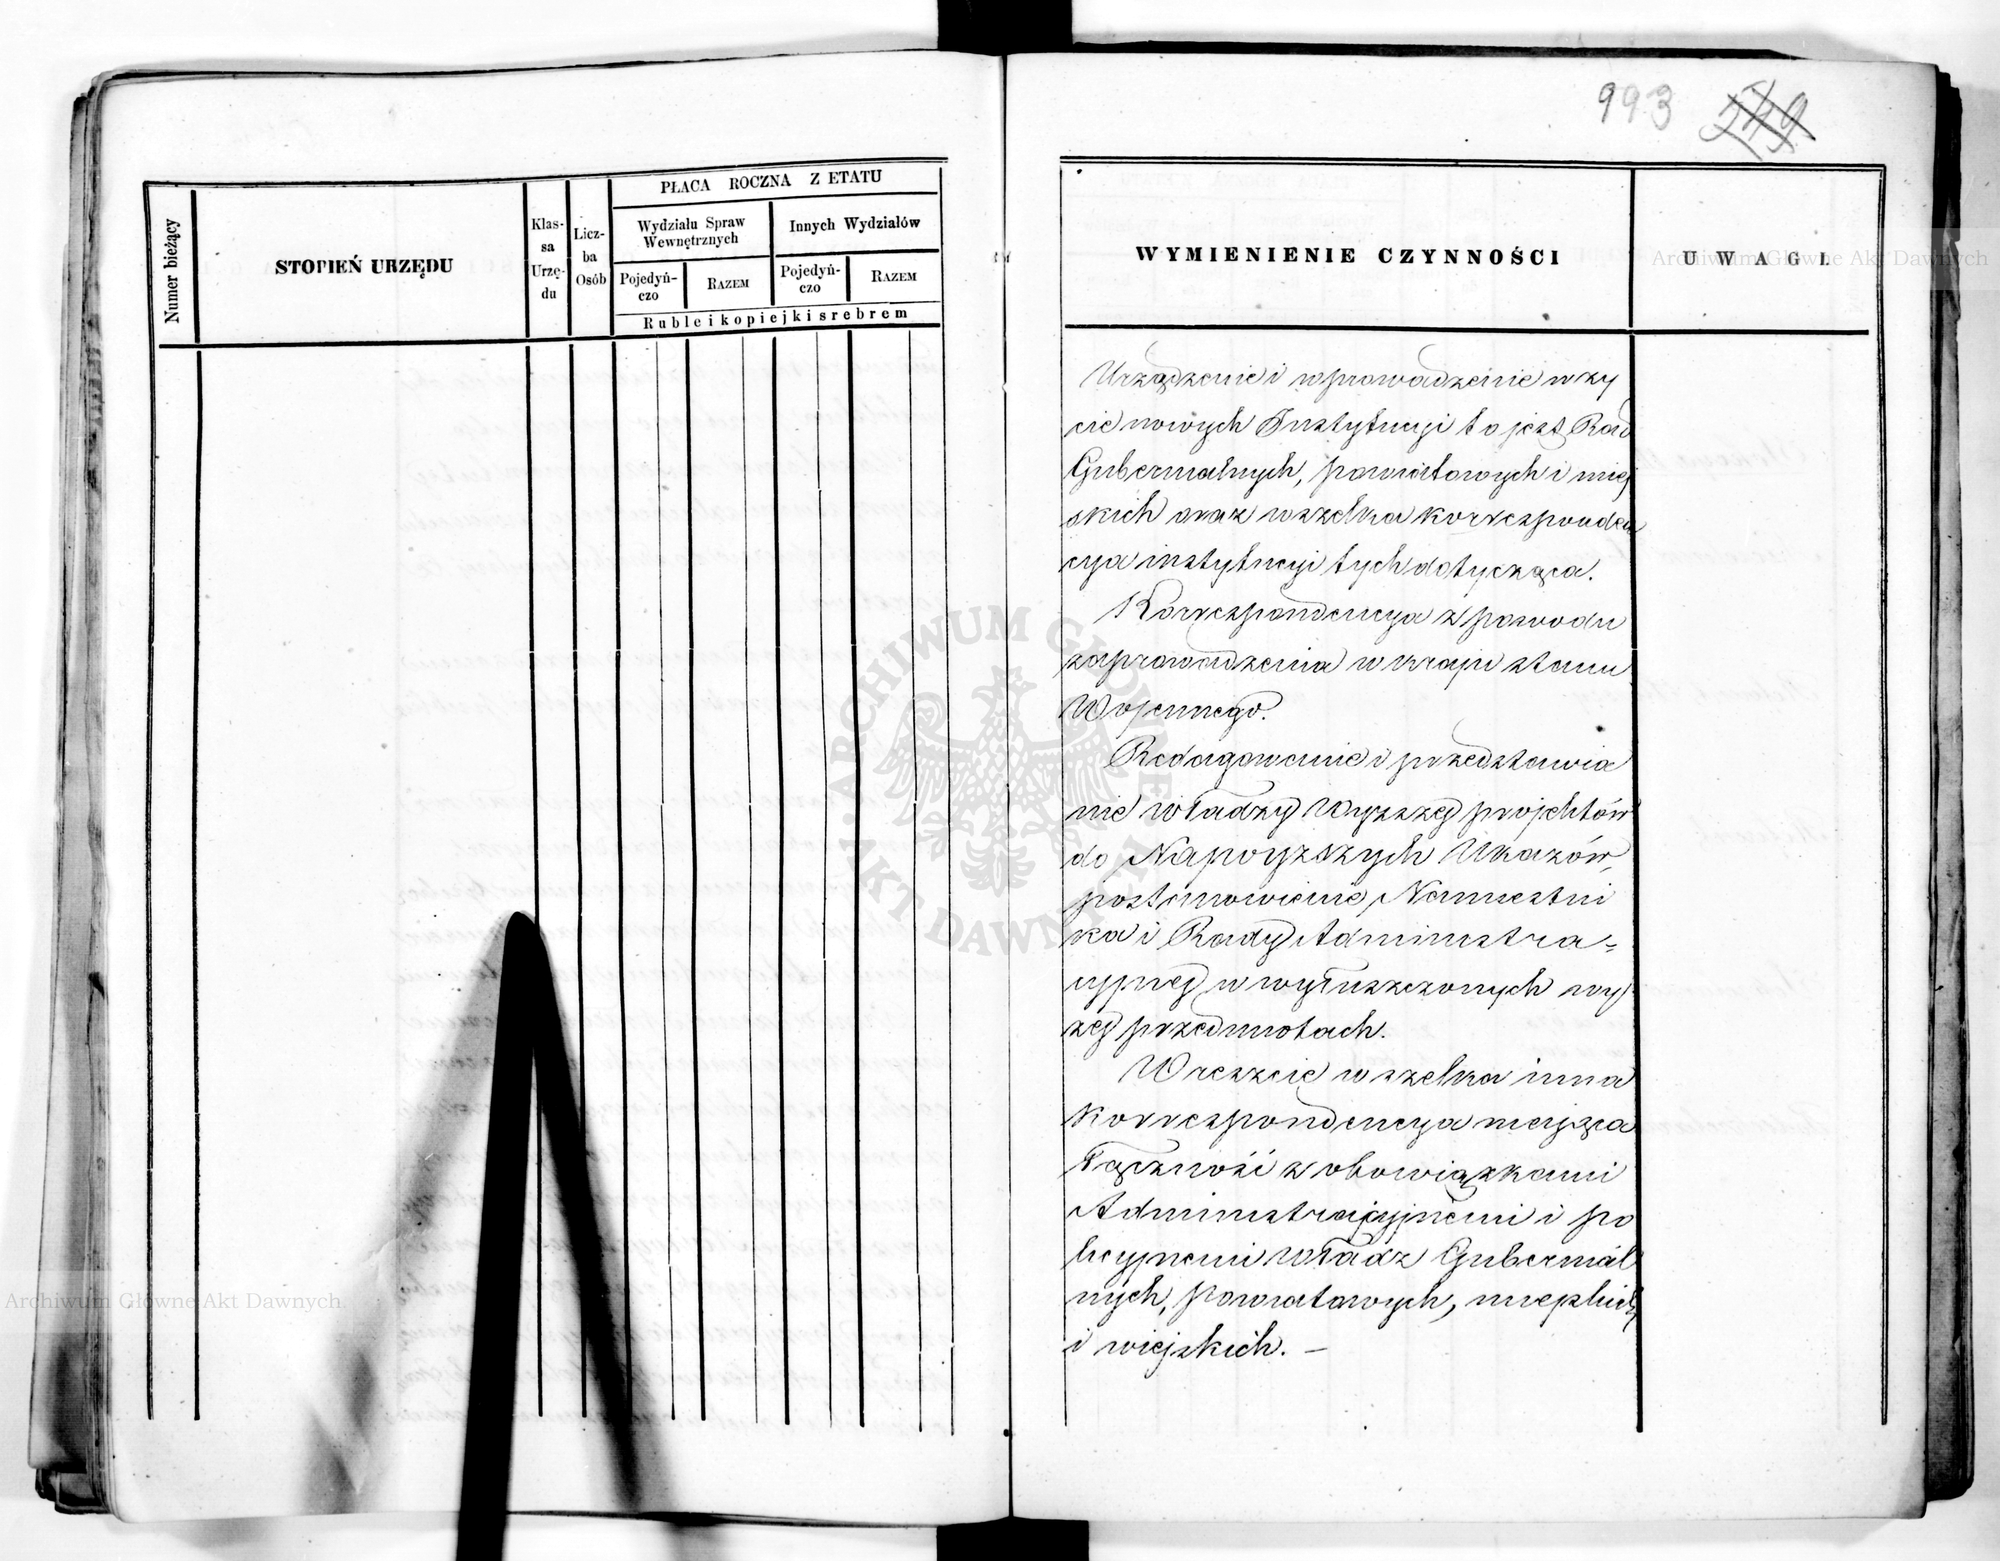 993 249
Numer bieżący
STOPIEŃ URZĘDU
Klas-
sa
Urzę-
du
Licz-
ba
Osób
PŁACA ROCZNA Z ETATU
Wydziału Spraw
Wewnętrznych
Innych Wydziałów
Pojedyń-
czo
RAZEM
Pojedyń-
czo
RAZEM
Ruble i kopiejki srebrem
WYMIENIENIE CZYNNOŚCI
UWAGI.
Urządzenie i wprowadzenie w ży
cie nowych Instytucyi to jest Rad
Gubernialnych, powiatowych i miej
skich oraz wszelka korresponden
cya instytucyi tych dotycząca.
Korrespondencya z powodu
zaprowadzenia w kraju stanu
Wojennego.
Redagowanie i przedstawia
nie władzy Wyższej projektów
do Najwyższych Ukazów,
postanowienie Namiestni
ka i Rady Administra=
cyjnej w wyłuszczonych wy
żej przedmiotach.
Wreszcie wszelka inna
Korrespondencya mająca
łączność z obowiązkami
Administracyjnemi i po
licyjnemi władz Gubernial
nych, Powiatowych, miejskich
i wiejskich. —
ARCHIWUM GŁÓWNE AKT DAWNYCH
Archiwum Główne Akt Dawnych
Archiwum Główne Akt Dawnych